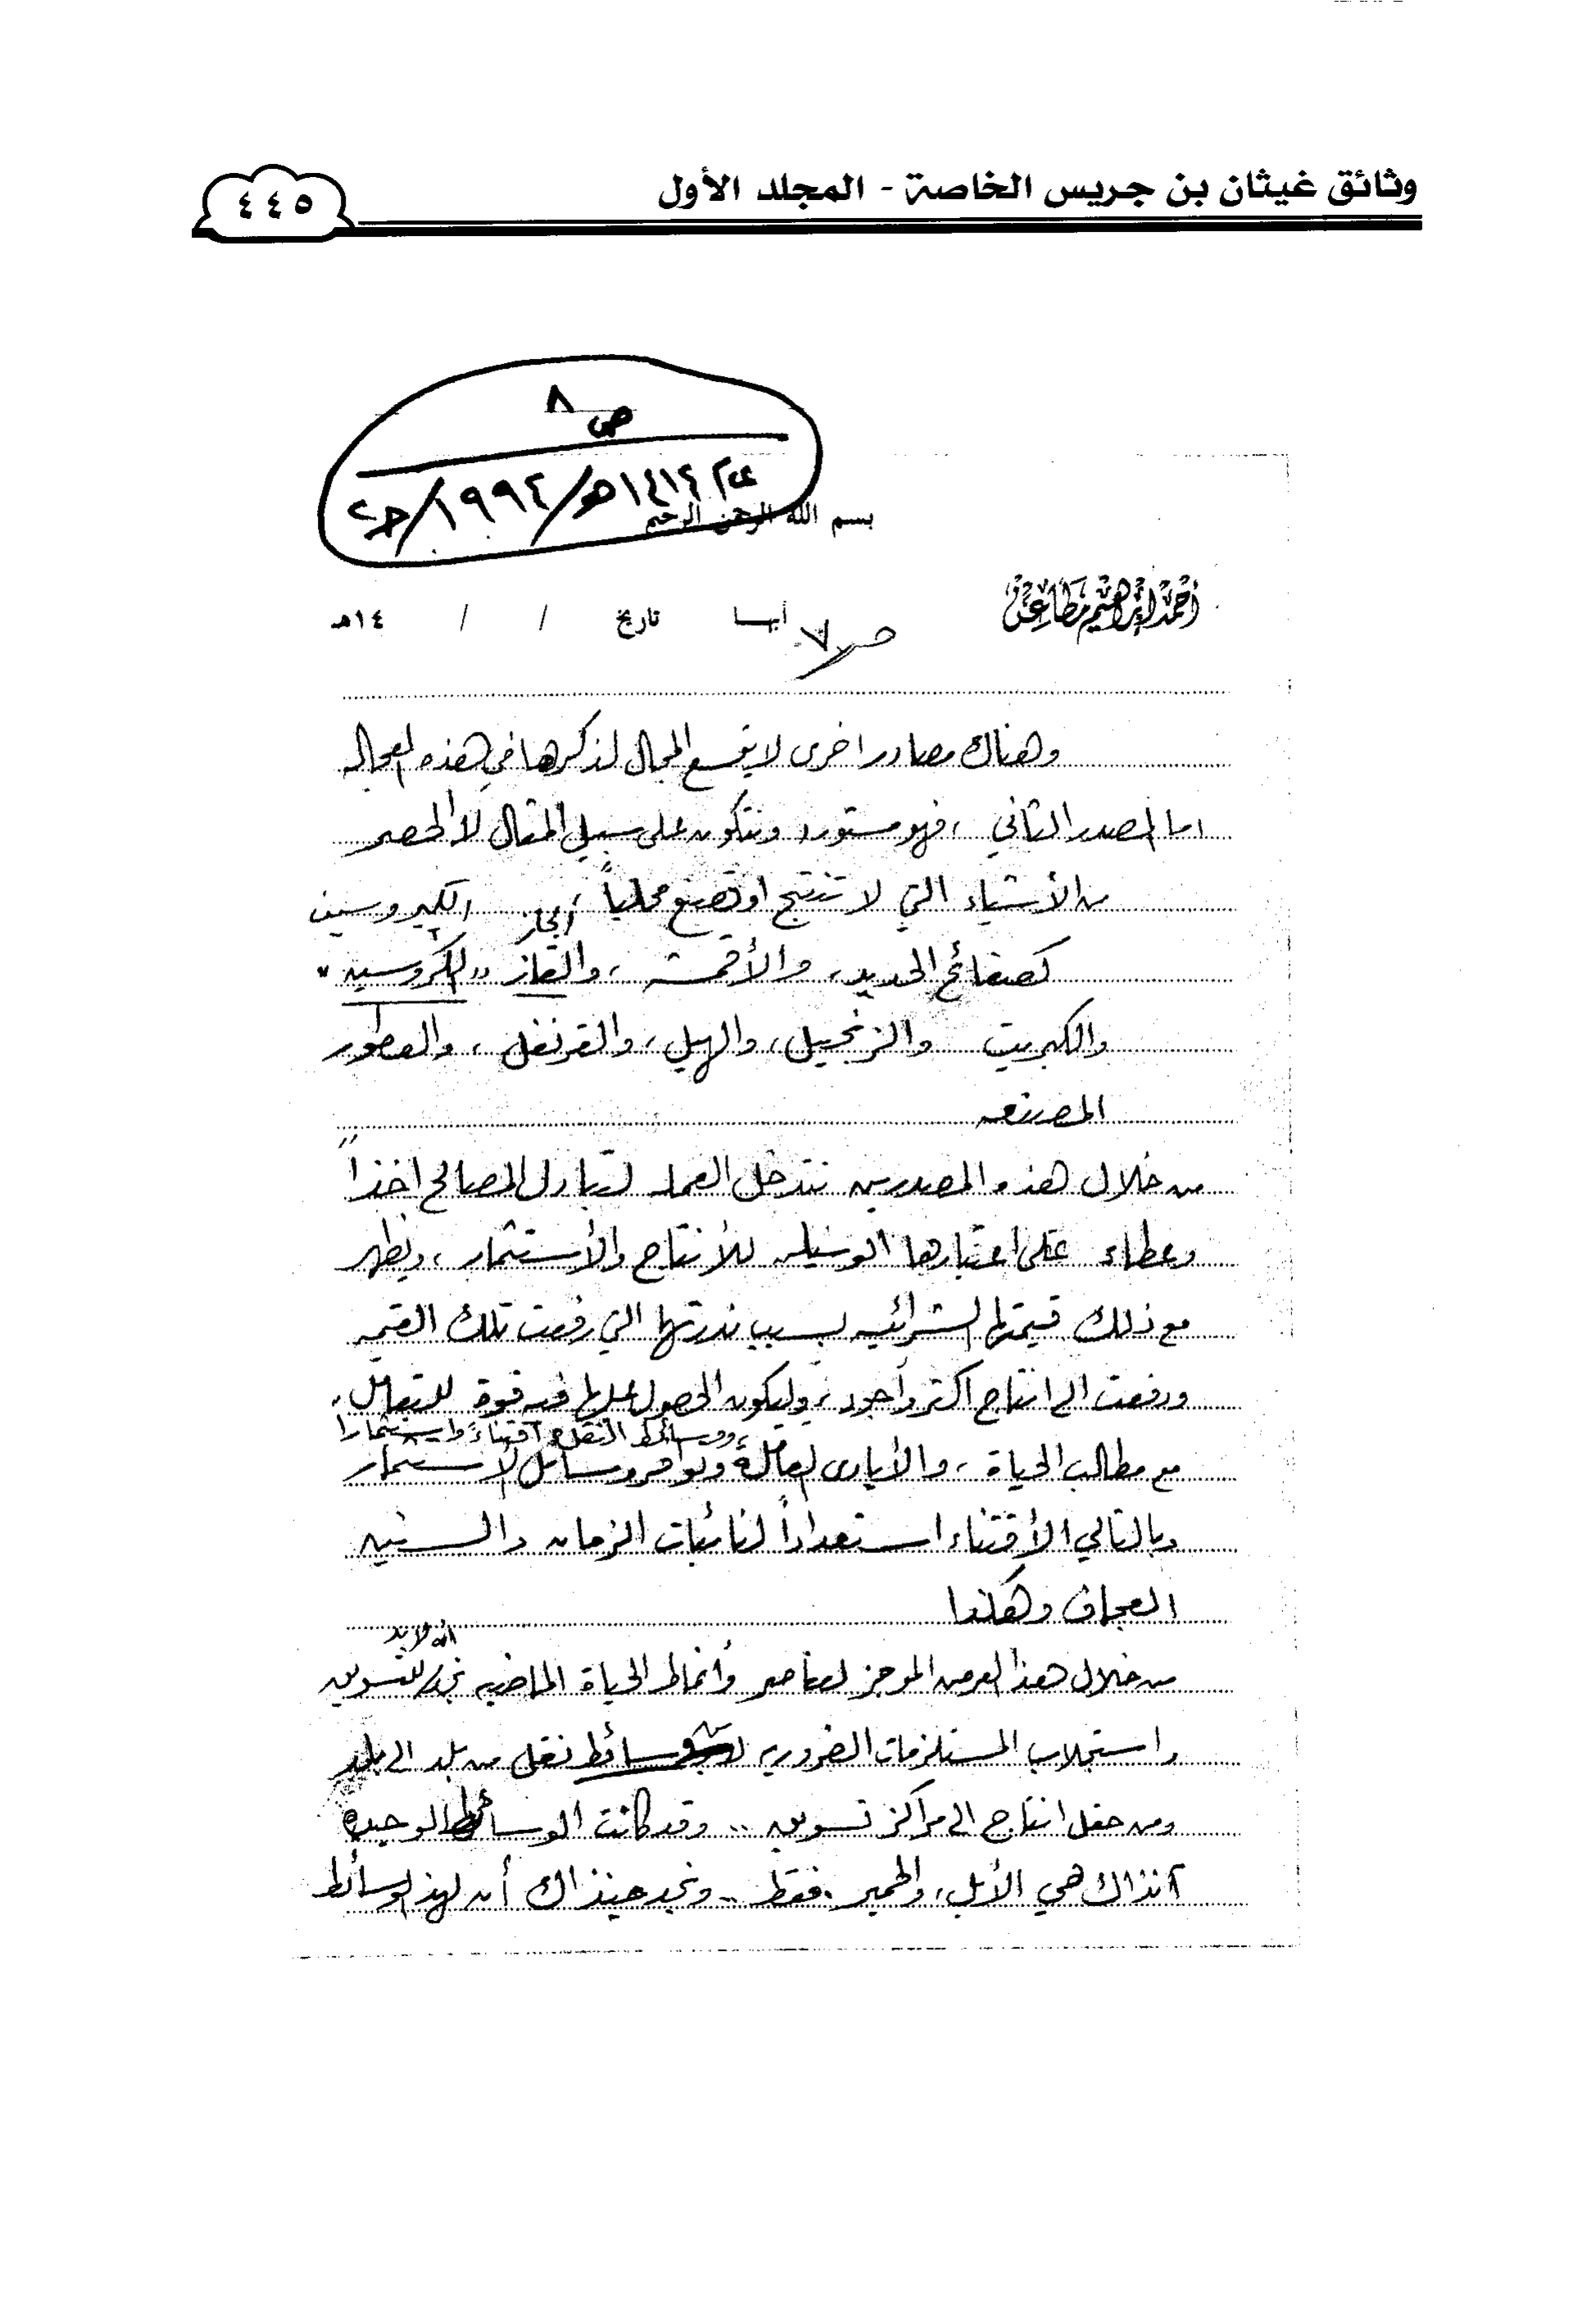 وثائق غيثان بن جريس الخاصة - المجلد الأول
٤٤٥
ص ٨
١٤١٢هـ/١٩٩٢م
بسم الله الرحمن الرحيم
أحمد إبراهيم مطاعن
ص ٧
أبها تاريخ / / ١٤هـ
وهناك مصادر اخرى لا يتسع المجال لذكرها في هذه العجاله
اما المصدر الثاني ، فهو مستورد ويتكون على سبيل المثال لا الحصر
من الأشياء التي لا تنتج او تصنع محلياً ،
الجاز الكيروسين
كصفائح الحديد ، والأقمشه ، والقاز "الكروسين"
والكبريت والزنجبيل ، والهيل ، والقرنفل ، والعطور
المصنعه
من خلال هذه المصدرين تتدخل العمله لتبادل المصالح اخذاً
وعطاء على اعتبارها الوسيله للأنتاج والأستثمار ، ويظهر
مع ذلك قيمتها الشرائيه بسبب ندرتها التي رفعت تلك القيمه
ودفعت الى انتاج اكثر وأجود ، وليكون الحصول عليها فيه قوة للتعامل
ووسائط النقل اقتناءً واستثمارا
مع مطالب الحياة ، والأيادى العاملة وتوافر وسائل الأستثمار
وبالتالي الأقتناء استعداداً لنائبات الزمان والسنين
العجاف وهكذا
انه لابد
من خلال هذا العرض الموجز لعناصر وأنماط الحياة الماضيه نجد للتسويق
واستجلاب المستلزمات الضروريه وسائط نقل من بلد الى بلد
ومن حقل انتاج الى مراكز تسويق .. وقد كانت الوسائط الوحيدة
آنذاك هي الأبل ، والحمير فقط .. ونجد حينذاك أن لهذه الوسائط